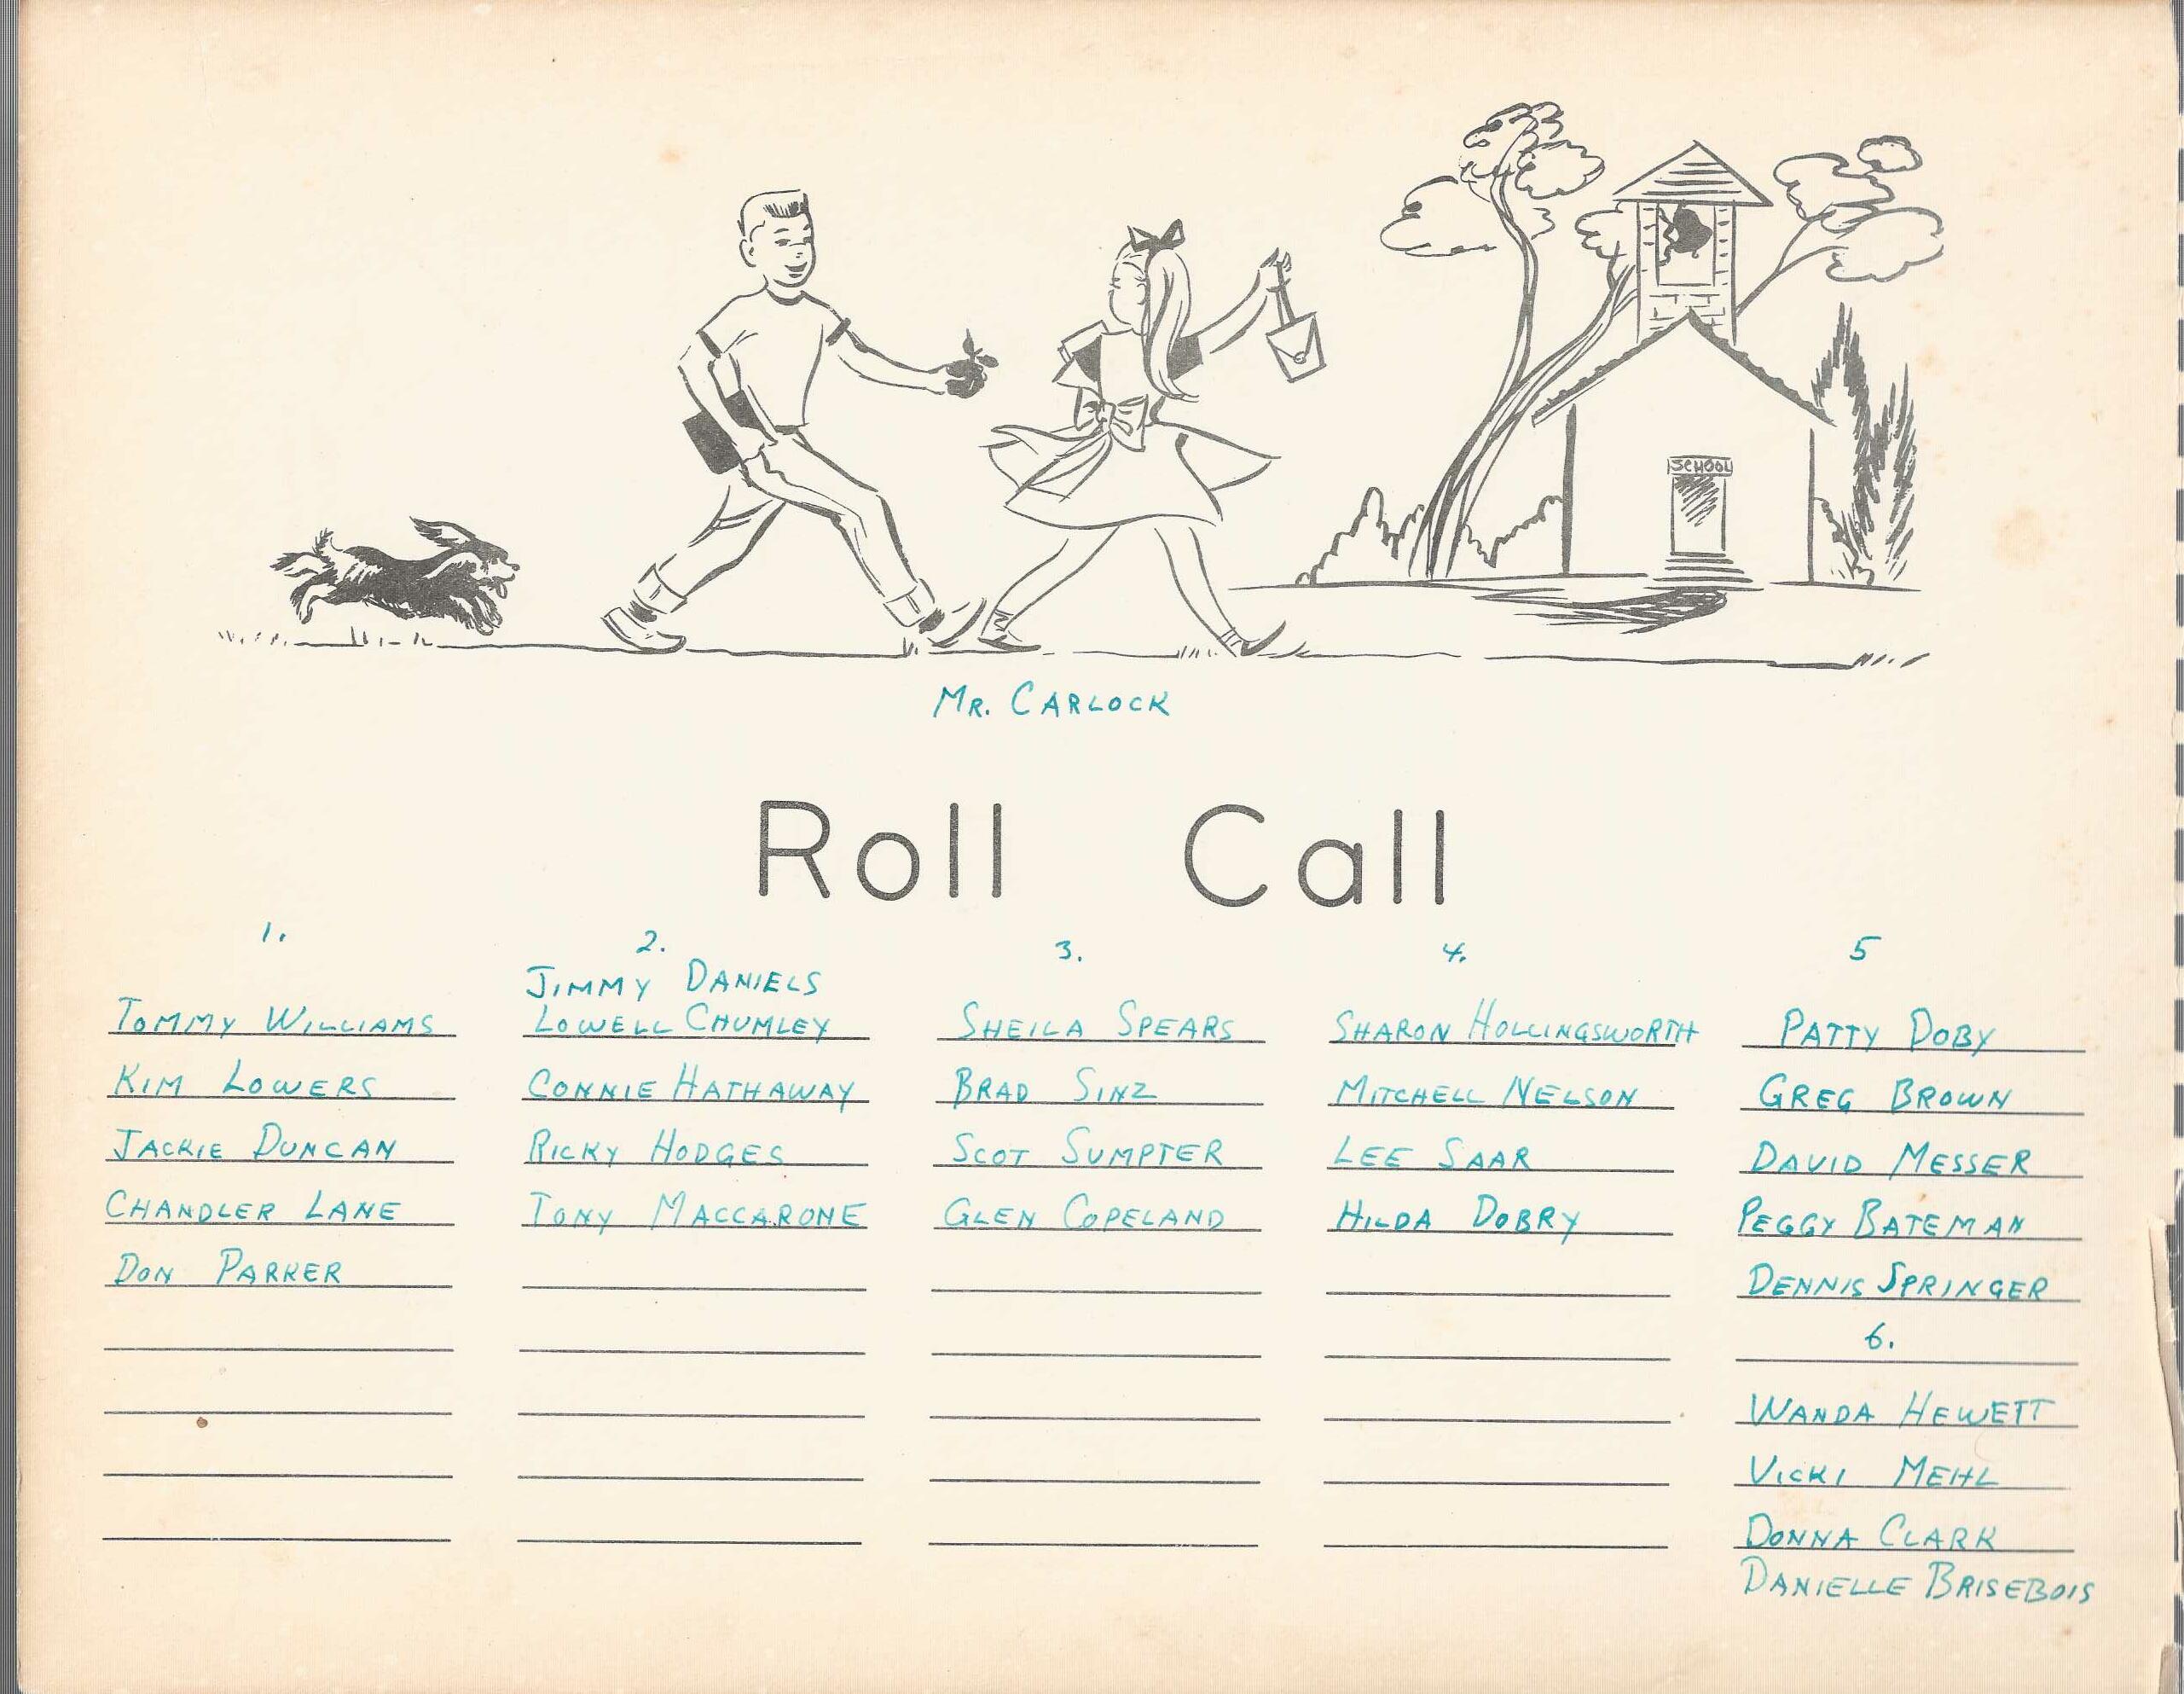 SCHOOL
MR. CARLOCK
Roll Call
1.
TOMMY WILLIAMS
KIM LOWERS
JACKIE DUNCAN
CHANDLER LANE
DON PARKER
2.
JIMMY DANIELS
LOWELL CHUMLEY
CONNIE HATHAWAY
RICKY HODGES
TONY MACCARONE
3.
SHEILA SPEARS
BRAD SINZ
SCOT SUMPTER
GLEN COPELAND
4.
SHARON HOLLINGSWORTH
MITCHELL NELSON
LEE SAAR
HILDA DOBRY
5
PATTY DOBY
GREG BROWN
DAVID MESSER
PEGGY BATEMAN
DENNIS SPRINGER
6.
WANDA HEWETT
VICKI MEHL
DONNA CLARK
DANIELLE BRISEBOIS